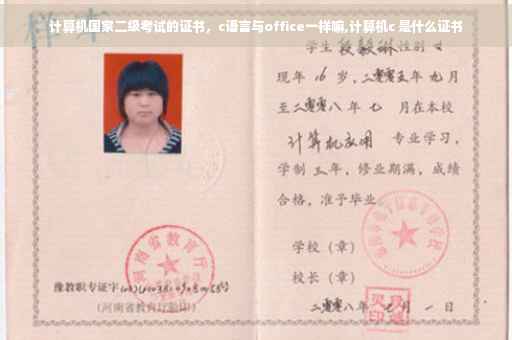 计算机国家二级考试的证书，c语言与office一样嘛,计算机c 是什么证书
样本
学生 段毅琳 性别 女
现年 16 岁，二零零五年 九月
至二零零八年 七 月在本校
计算机应用 专业学习，
学制 三 年，修业期满，成绩
合格，准予毕业
学校（章）
校长（章）
河南省教育厅
豫教职专证字
（河南省教育厅验印）
二零零八年 月 一 日